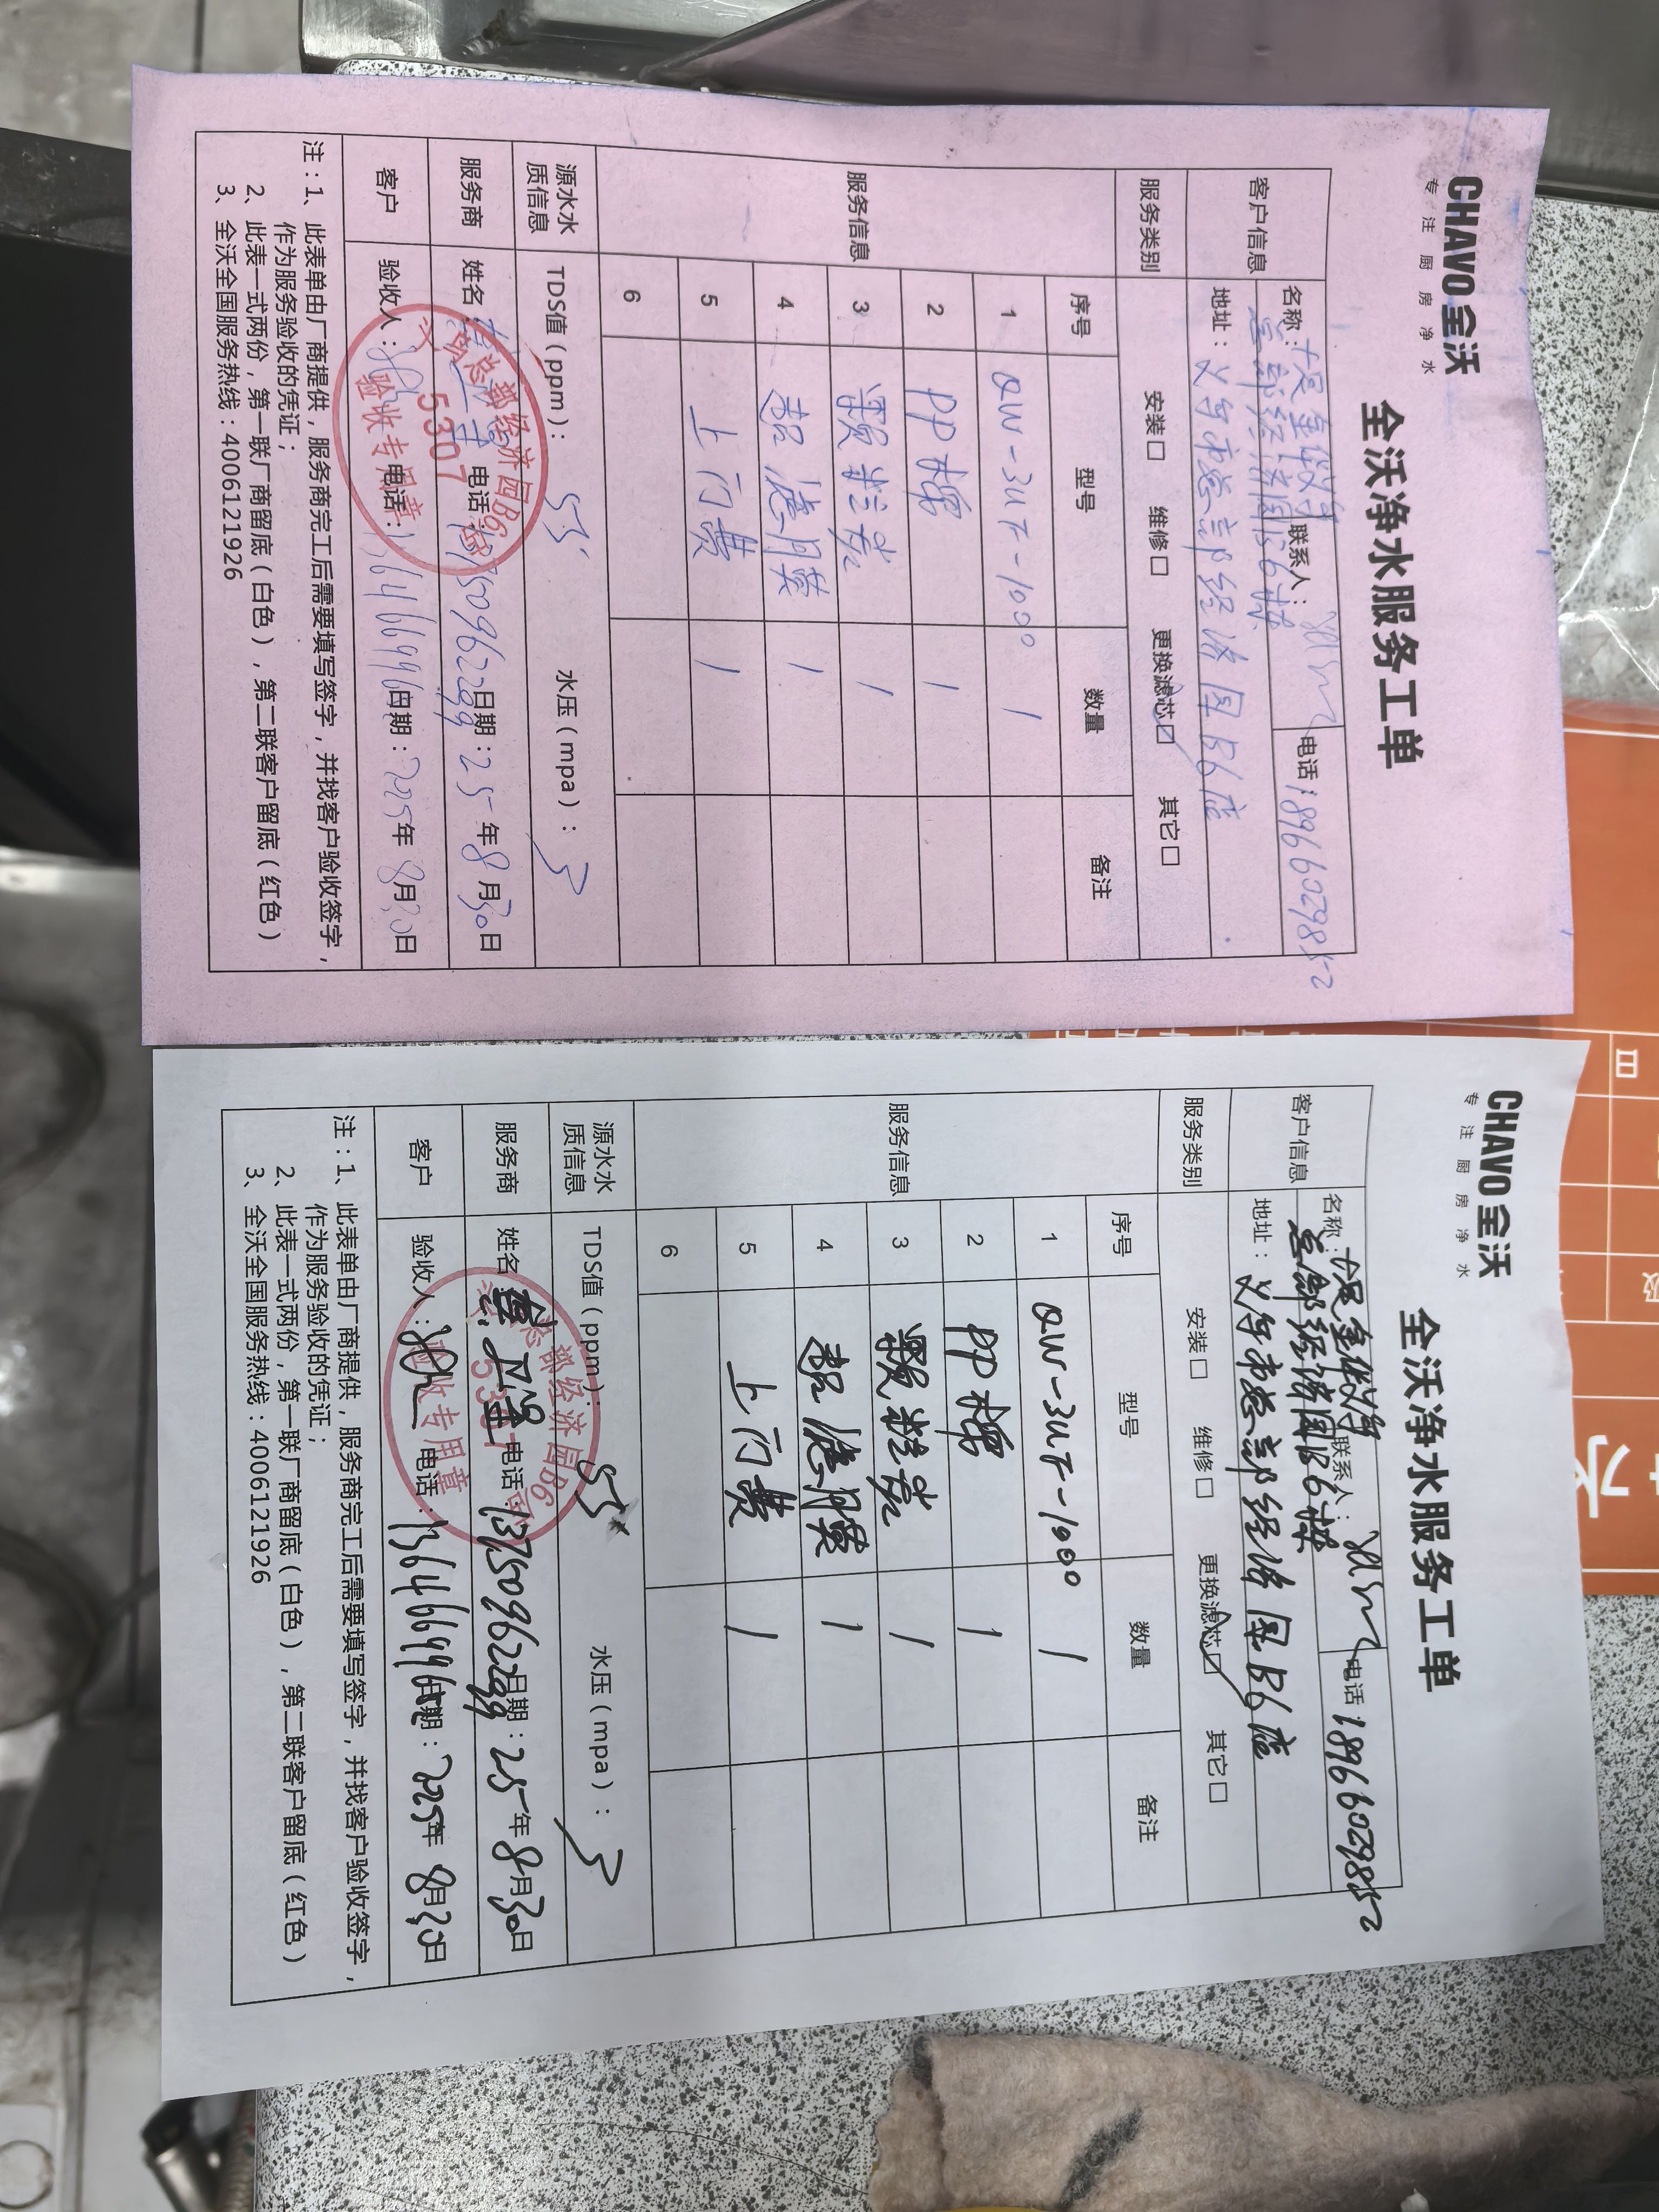 CHAVO全沃
专注厨房净水
全沃净水服务工单
客户信息
名称：
总部经济园B6栋
联系人：
电话：18966029852
地址：义乌市总部经济园B6店
服务类别
安装□ 维修□ 更换滤芯☑ 其它□
服务信息
序号 型号 数量 备注
1 QW-3UF-1000 1
2 PP棉 1
3 颗粒炭 1
4 超滤膜 1
5 上门费 1
6
源水水质信息
TDS值（ppm）：55 水压（mpa）：3
服务商
姓名： 电话：13750962299 日期：25年8月30日
客户
验收人： 电话： 日期：2025年8月30日
总部经济园B6
5307
验收专用章
注：1、此表单由厂商提供，服务商完工后需要填写签字，并找客户验收签字，
作为服务验收的凭证；
2、此表一式两份，第一联厂商留底（白色），第二联客户留底（红色）
3、全沃全国服务热线：4006121926
CHAVO全沃
专注厨房净水
全沃净水服务工单
客户信息
名称：
总部经济园B6栋
联系人：
电话：18966029852
地址：义乌市总部经济园B6店
服务类别
安装□ 维修□ 更换滤芯☑ 其它□
服务信息
序号 型号 数量 备注
1 QW-3UF-1000 1
2 PP棉 1
3 颗粒炭 1
4 超滤膜 1
5 上门费 1
6
源水水质信息
TDS值（ppm）：55 水压（mpa）：3
服务商
姓名： 电话：13750962299 日期：25年8月30日
客户
验收人： 电话： 日期：2025年8月30日
总部经济园B6
5307
验收专用章
注：1、此表单由厂商提供，服务商完工后需要填写签字，并找客户验收签字，
作为服务验收的凭证；
2、此表一式两份，第一联厂商留底（白色），第二联客户留底（红色）
3、全沃全国服务热线：4006121926
日
水